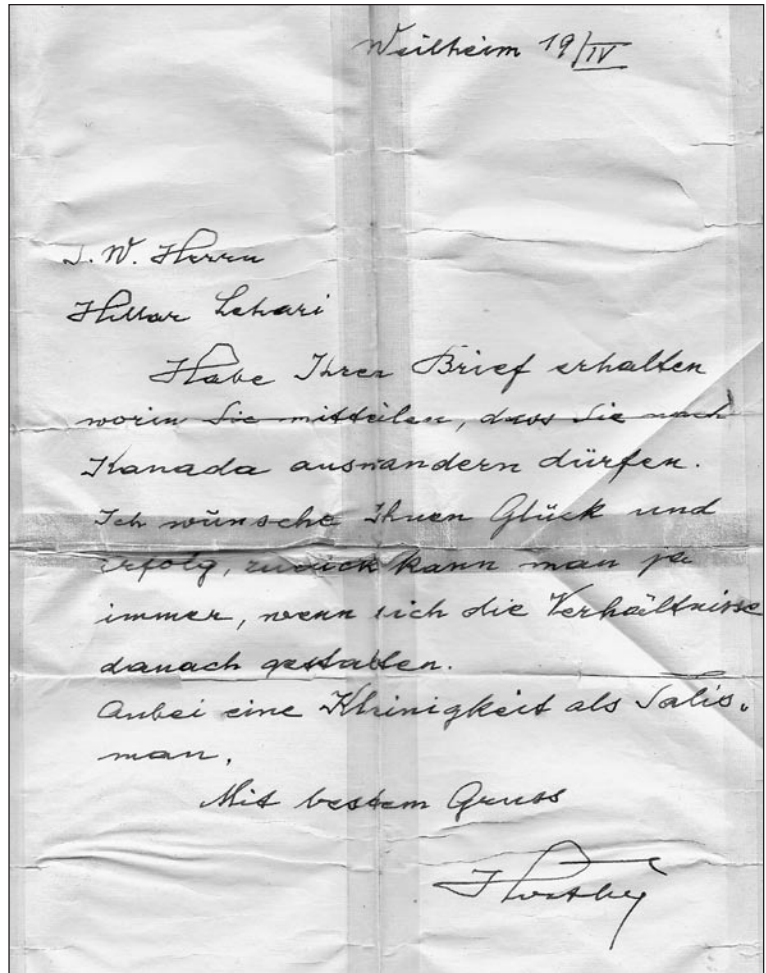 Weilheim 19/IV
S. W. Herrn
Hillar Lehari
Habe Ihren Brief erhalten
worin Sie mitteilen, dass Sie nach
Kanada auswandern dürfen.
Ich wünsche Ihnen Glück und
Erfolg, zurück kann man ja
immer, wenn sich die Verhältnisse
danach gestalten.
Anbei eine Kleinigkeit als Talis-
man.
Mit bestem Gruss
Horthy